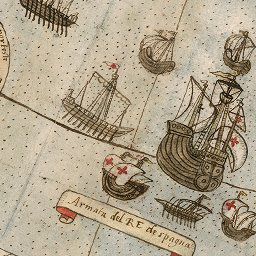 Armata del RE despagna